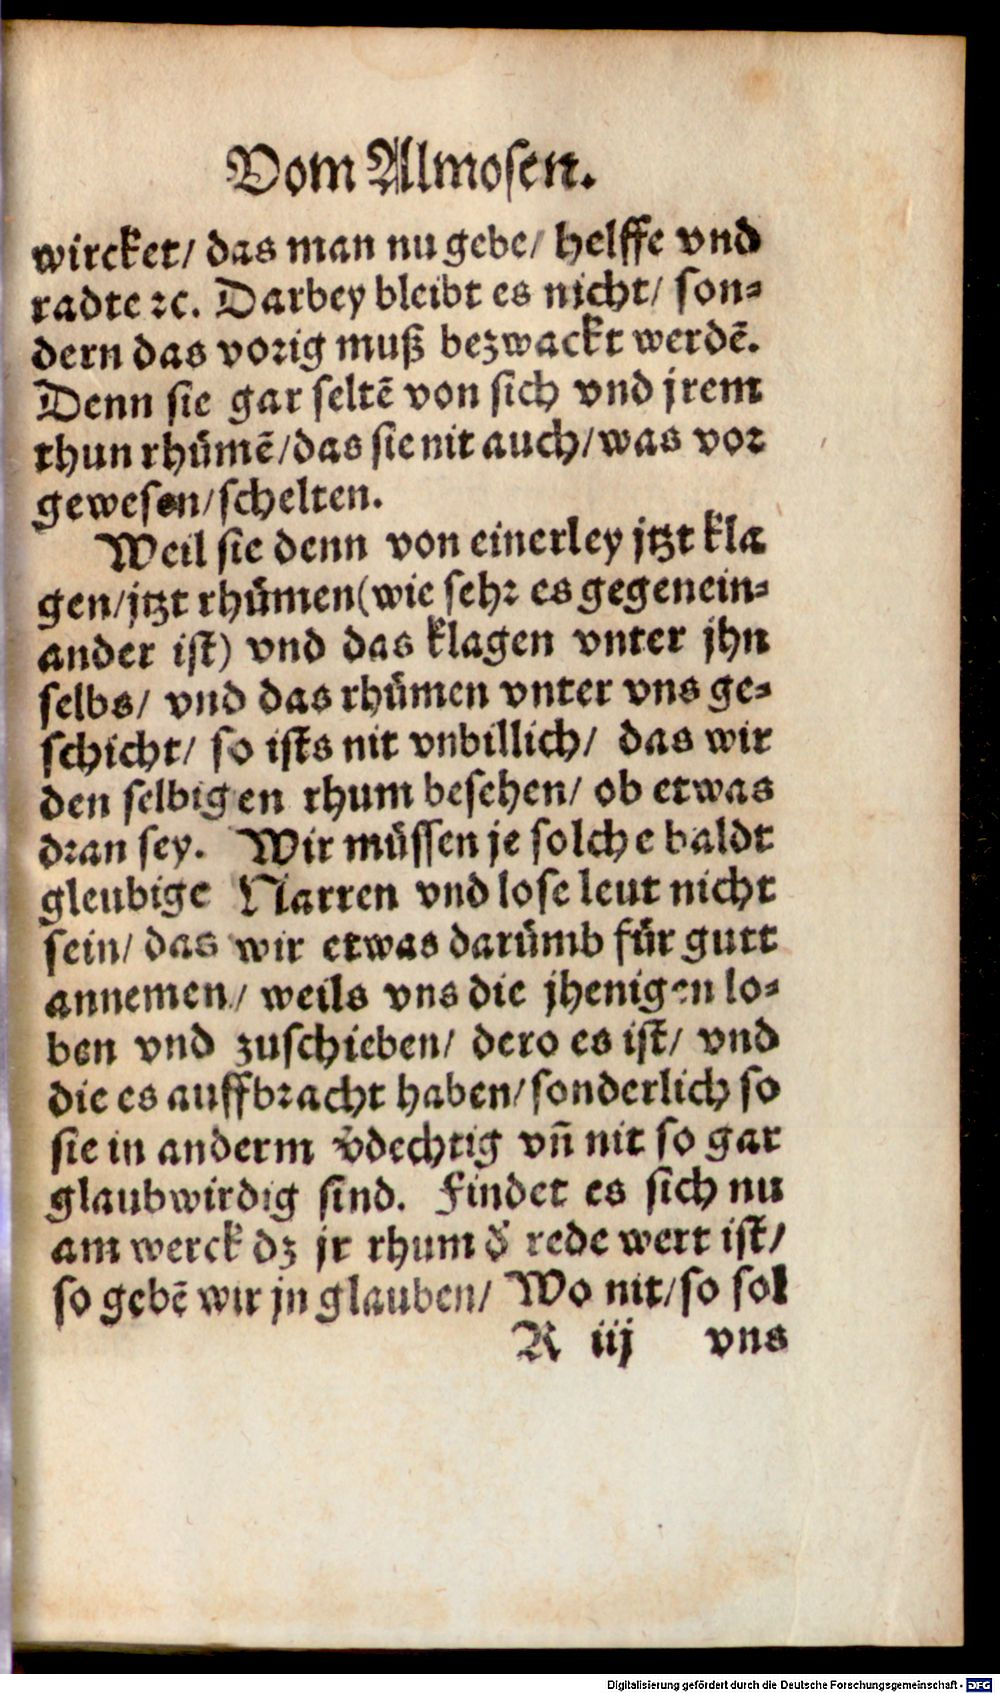 Vom Almosen.
wircket/ das man nu gebe/ helffe vnd
radte ꝛc. Darbey bleibt es nicht/ son⸗
dern das voꝛig muß bezwackt werdẽ.
Denn sie gar seltẽ von sich vnd jrem
thun rhümẽ/das sie nit auch/was voꝛ
gewesen/schelten.
Weil sie denn von einerley jtzt kla
gen/jtzt rhümen(wie sehꝛ es gegenein⸗
ander ist) vnd das klagen vnter jhn
selbs/ vnd das rhümen vnter vns ge⸗
schicht/ so ists nit vnbillich/ das wir
den selbigen rhum besehen/ ob etwas
dꝛan sey. Wir müssen je solche baldt
gleubige Narren vnd lose leut nicht
sein/ das wir etwas darümb für gutt
annemen/ weils vns die jhenigen lo⸗
ben vnd zuschieben/ dero es ist/ vnd
die es auffbꝛacht haben/sonderlich so
sie in anderm v̄dechtig vñ nit so gar
glaubwirdig sind. Findet es sich nu
am werck dz jr rhum d̄ rede wert ist/
so gebẽ wir jn glauben/ Wo nit/so sol
R iij vns
Digitalisierung gefördert durch die Deutsche Forschungsgemeinschaft - DFG